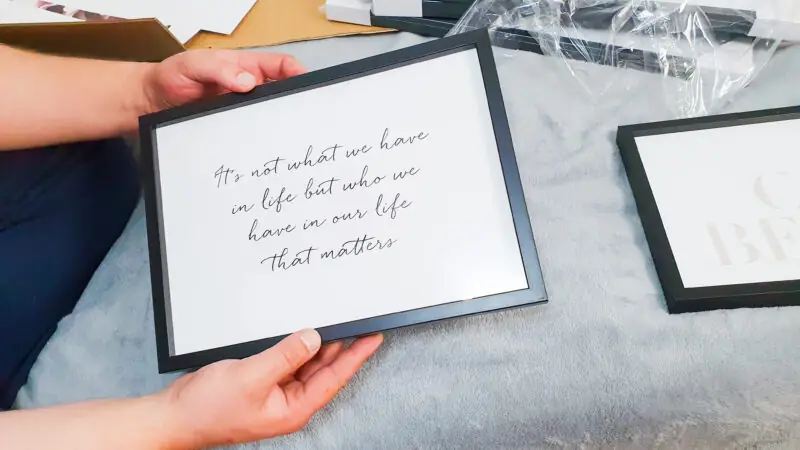 It's not what we have
in life but who we
have in our life
that matters